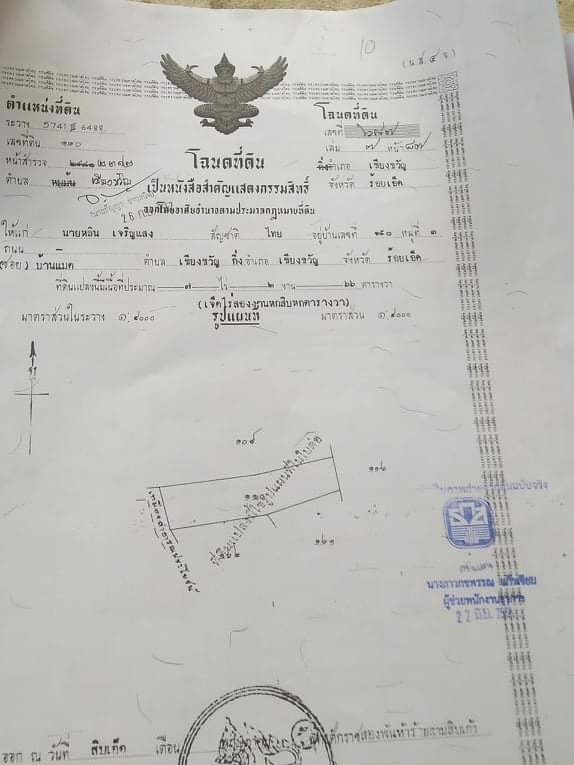 10
(น.ส. ๔ จ)
ตำแหน่งที่ดิน
ระวาง 5741 II 6488
เลขที่ดิน ๑๑๐
หน้าสำรวจ ๒๓๗๒
ตำบล เชียงขวัญ
โฉนดที่ดิน
เลขที่
เล่ม ๗ หน้า ๘๗
กิ่งอำเภอ เชียงขวัญ
จังหวัด ร้อยเอ็ด
โฉนดที่ดิน
เป็นหนังสือสำคัญแสดงกรรมสิทธิ์
ออกโดยอาศัยอำนาจตามประมวลกฎหมายที่ดิน
ให้แก่ นายหลิน เจริญแสง สัญชาติ ไทย อยู่บ้านเลขที่ ๑๔๐ หมู่ที่ ๓
ถนน
(ซอย) บ้านแมด ตำบล เชียงขวัญ กิ่งอำเภอ เชียงขวัญ จังหวัด ร้อยเอ็ด
ที่ดินแปลงนี้มีเนื้อที่ประมาณ ๗ ไร่ ๒ งาน ๖๖ ตารางวา
(เจ็ดไร่สองงานหกสิบหกตารางวา)
มาตราส่วนในระวาง ๑:๔๐๐๐ รูปแผนที่ มาตราส่วน ๑:๔๐๐๐
๑๐๙
๑๑๐
ที่ดินแปลงนี้ใช้รูปแผนที่ในใบต่อ
ทางสาธารณประโยชน์
ผู้ช่วยพนักงานธุรการ
22 มิ.ย.
ออก ณ วันที่ สิบเอ็ด เดือน พุทธศักราชสองพันห้าร้อยสามสิบเก้า